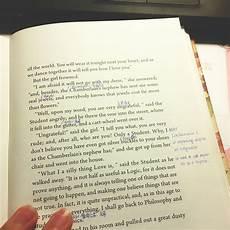 all the world. You will wear it tonight next your heart, and as
we dance together it will tell you how I love you."
But the girl frowned.
"I am afraid it will not go with my dress," she answered;
"and, besides, the Chamberlain's nephew has sent me some
real jewels, and everybody knows that jewels cost far more
than flowers."
"Well, upon my word, you are very ungrateful," said the
Student angrily; and he threw the rose into the street, where
it fell into the gutter, and a cart-wheel went over it.
"Ungrateful!" said the girl. "I tell you what, you are very
rude; and, after all, who are you? Only a Student. Why, I
don't believe you have even got silver buckles to your shoes
as the Chamberlain's nephew has"; and she got up from her
chair and went into the house.
"What a silly thing Love is," said the Student as he
walked away. "It is not half as useful as Logic, for it does not
prove anything, and it is always telling one of things that
are not going to happen, and making one believe things that are
not true. In fact, it is quite unpractical, and, as in this age
to be practical is everything, I shall go back to Philosophy and
to his room and pulled out a great dusty